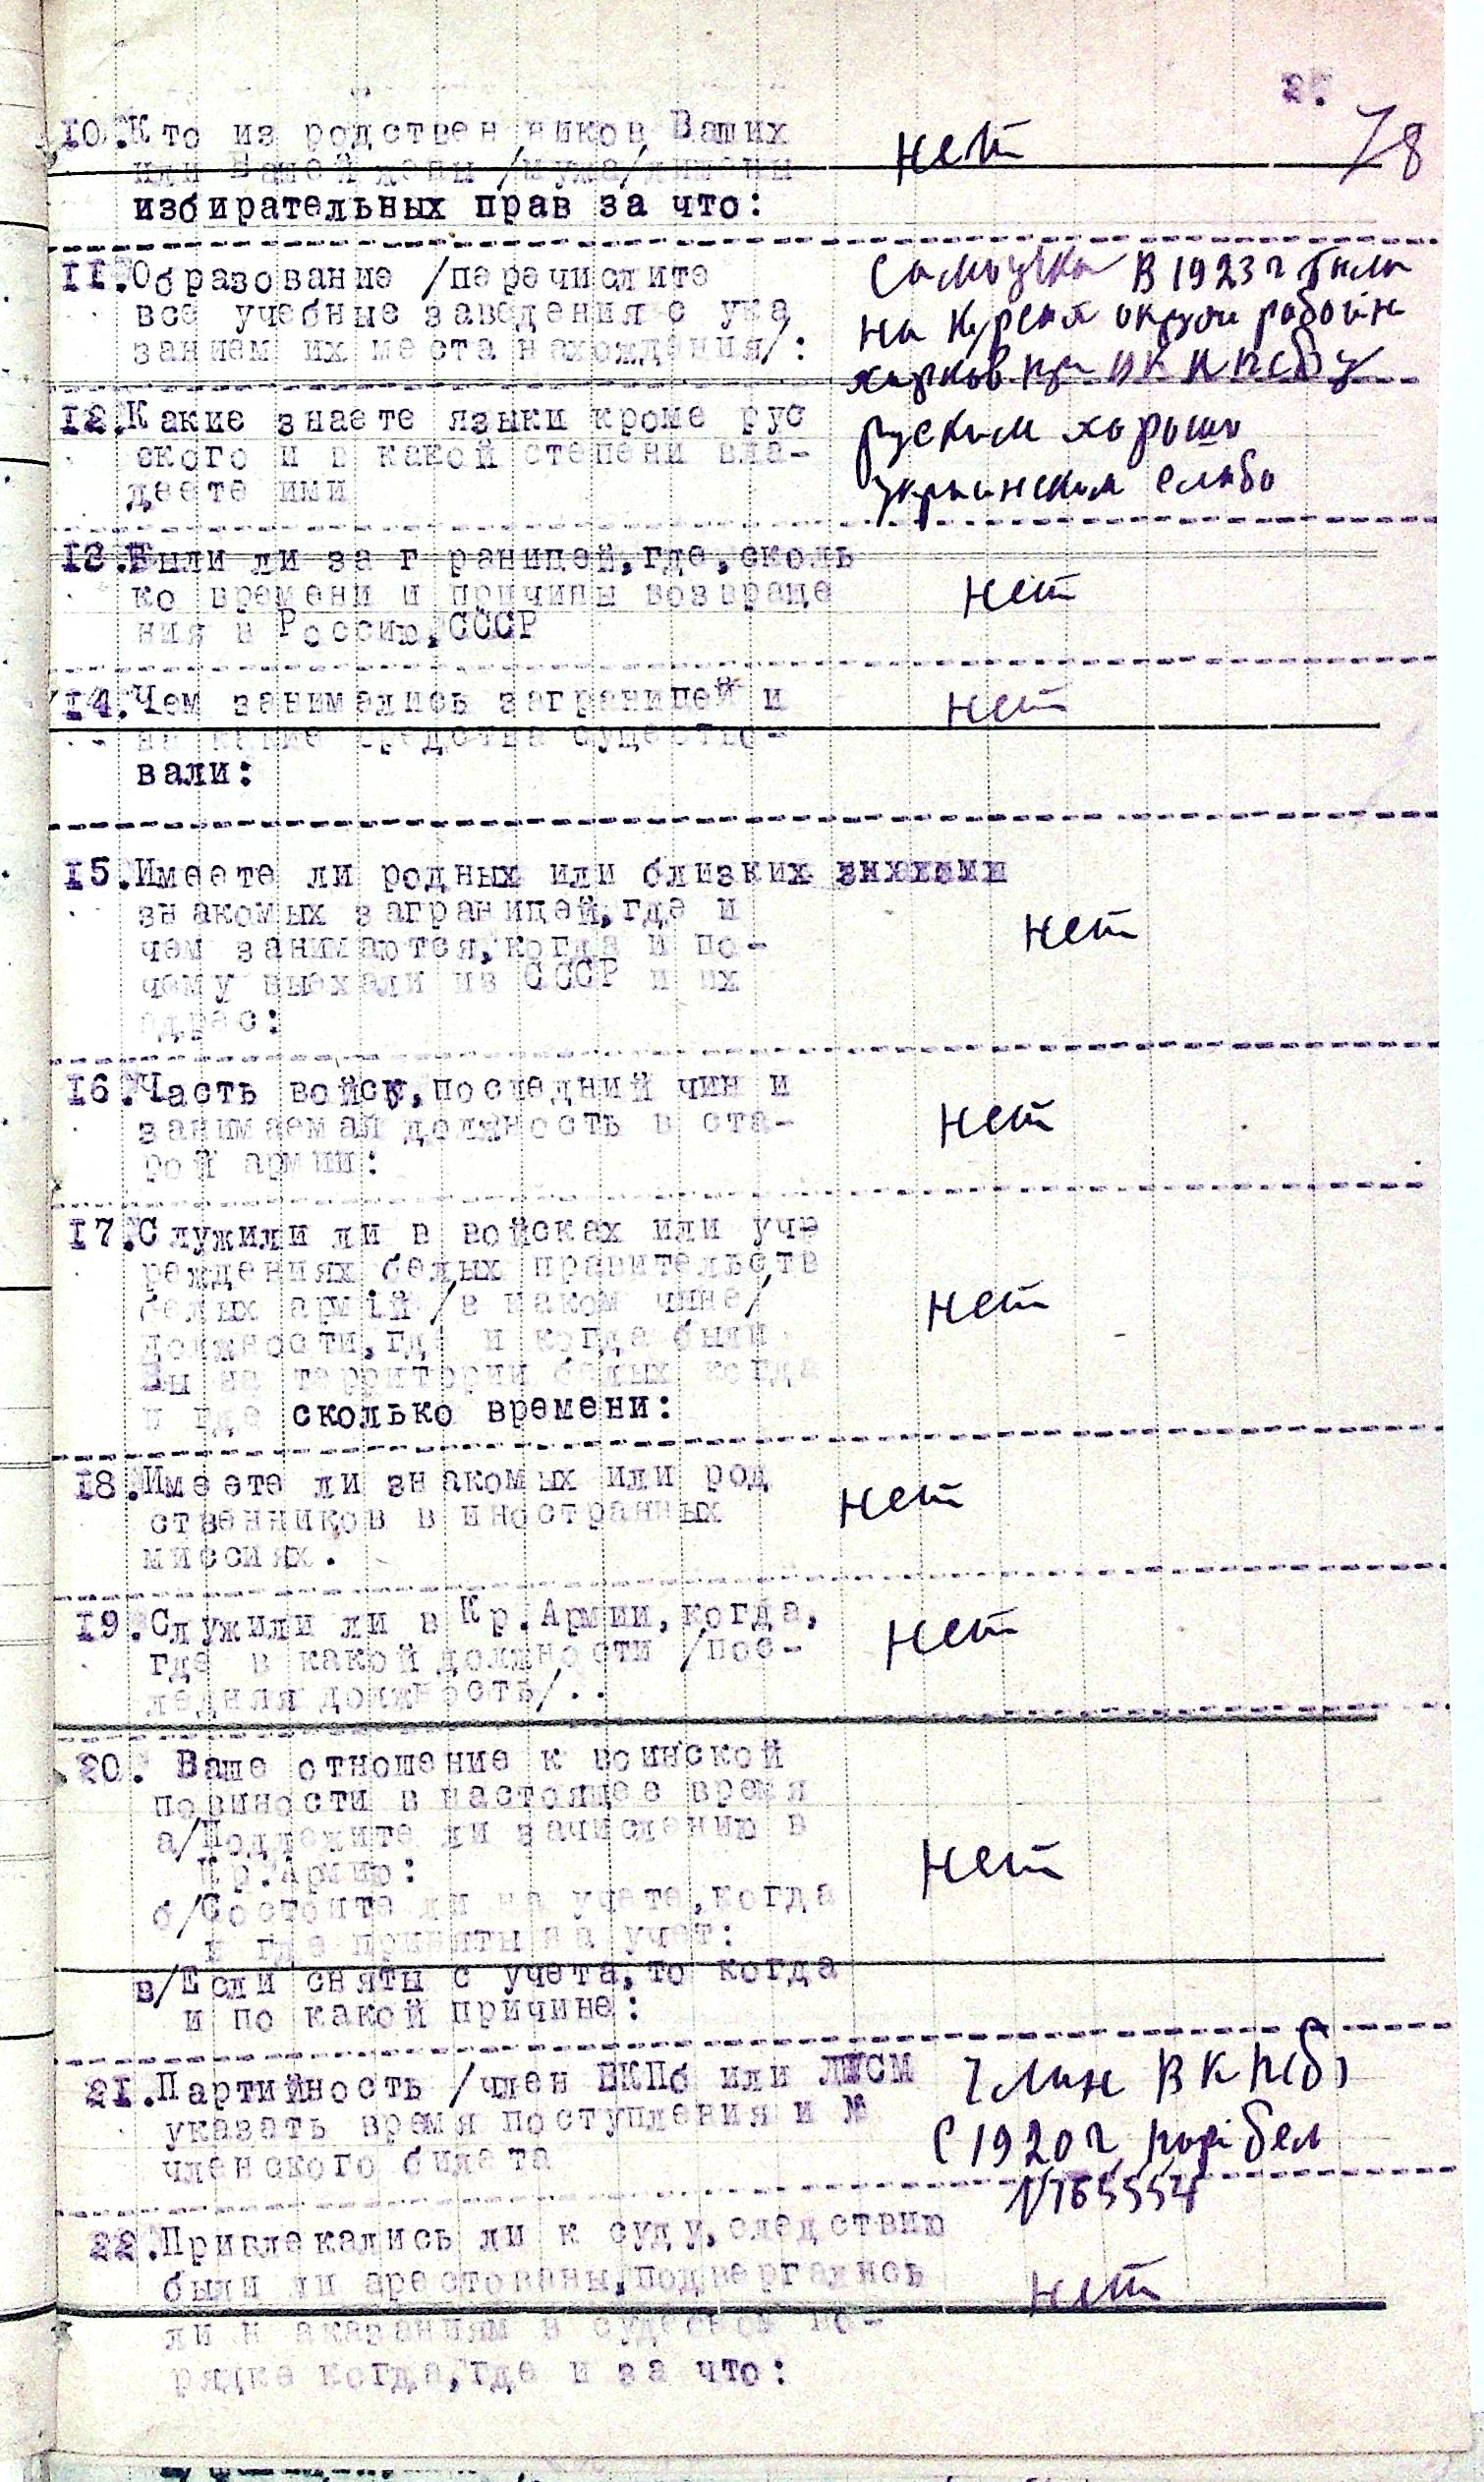 2.
78
10.Кто из родствен ников Ваших
или Вашей жены /мужа/лишены
избирательных прав за что:
нет
11.Образование /перечислите
все учебные заведения с ука
занием их места нахождения/:
Самоучка В 1923 г была
на курсах окруж работн
харков при ЦК КП(б)у
12.Какие знаете языки кроме рус
ского и в какой степени вла-
деете ими
руским хорошо
украинским слабо
13.Были ли за г раницей,где,сколь
ко времени и причины возвраще
ния в Россию,СССР
нет
14.Чем занимались заграницей и
на какие средства существо-
вали:
нет
15.Имеете ли родных или близких
знакомых заграницей,где и
чем занимаются,когда и по-
чему выехали из СССР и их
адрес:
нет
16.Часть войск,последний чин и
занимаемая должность в ста-
рой армии:
нет
17.Служили ли в войсках или уч
реждениях белых правительств
белых армій/в каком чине/
должности,где и когда были
Вы на территории белых когда
и где сколько времени:
нет
18.Имеете ли знакомых или род
ственников в иностранных
миссиях.
нет
19.Служили ли в Кр.Армии,когда,
где в какой должности /пос-
ледняя должность/..
нет
20. Ваше отношение к воинской
повиности в настоящее время
а/Подлежите ли зачислению в
Кр.Армию:
б/Состоите ли на учете,когда
и где приняты на учет:
в/Если сняты с учета,то когда
и по какой причине:
нет
21.Партийность /член ВКПб или ЛКСМ
указать время поступления и №
членского билета
Член ВКП(б)
С 1920 г парт бел
22.Привлекались ли к суду,следствию
были ли арестованы,подвергались
ли н аказаниям в судебном по-
рядке когда,где и за что:
нет